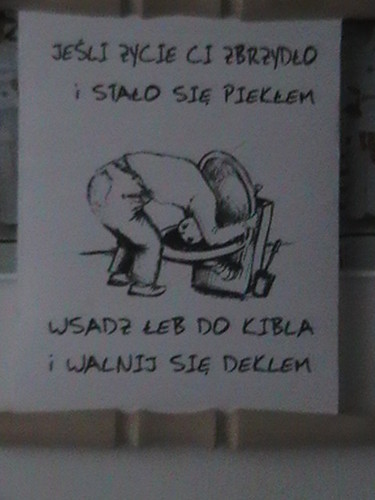 JEŚLI ŻYCIE CI ZBRZYDŁO
i STAŁO SIĘ PIEKŁEM
WSADZ ŁEB DO KIBLA
i WALNIJ SIĘ DEKLEM